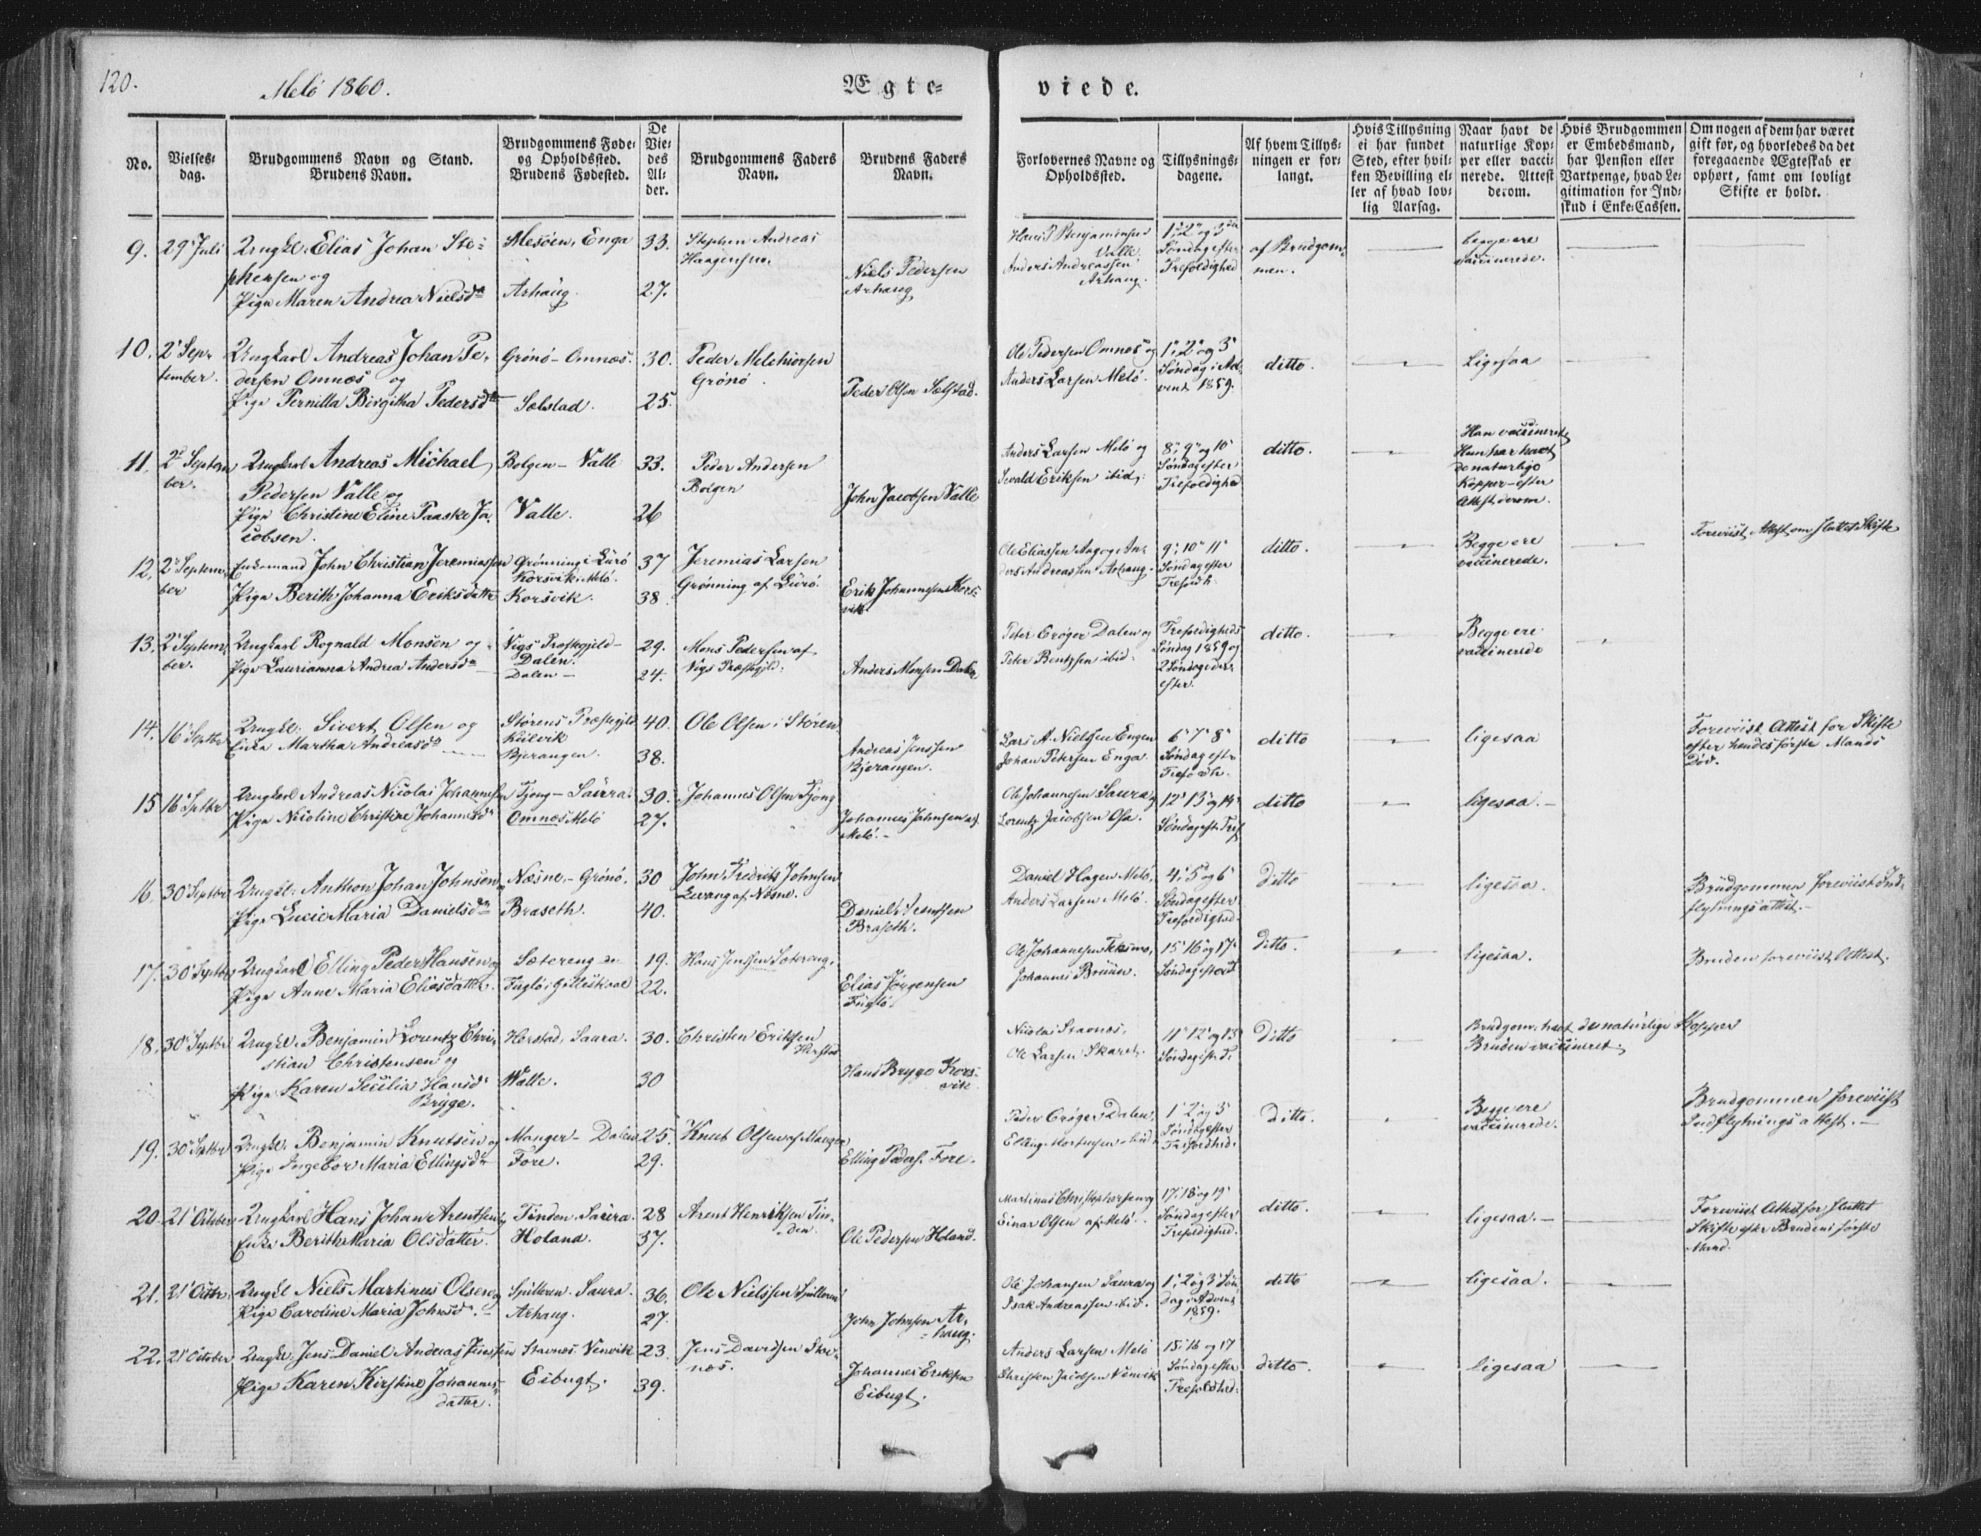 120.
Melö 1860.
Ægte-
viede.
No.
Vielses-
dag.
Brudgommens Navn og Stand.
Brudens Navn.
Brudgommens Føde-
og Opholdssted.
Brudens Fødested.
De
Vie-
des
Al-
der.
Brudgommens Faders
Navn.
Brudens Faders
Navn.
Forlovernes Navne og
Opholdssted.
Tillysnings-
dagene.
Af hvem Tillys-
ningen er for-
langt.
Hvis Tillysning
ei har fundet
Sted, efter hvil-
ken Bevilling el-
ler af hvad lov-
lig Aarsag.
Naar havt de
naturlige Kop-
per eller vacci-
nerede. Attest
derom.
Hvis Brudgommen
er Embedsmand,
har Pension eller
Vartpenge, hvad Le-
gitimation for Ind-
skud i Enke-Cassen.
Om nogen af dem har været
gift før, og hvorledes da det
foregaaende Ægteskab er
ophørt, samt om lovligt
Skifte er holdt.
9. 29' Juli Ungkl. Elias Johan Ste-
phensen og
Pige Maren Andrea Nielsdr
Mesöen, Enga
Arhaug.
33.
27.
Stephen Andreas
Haagensen.
Niels Pedersen
Arhaug
Hans P Benjaminsen
Valle
Anders Andreassen
Arhaug.
1', 2' og 3'
Søndag efter
Trefoldighed
af Brudgom-
men.
begge ere
vaccinerede.
10. 2' Sep-
tember.
Ungkarl Andreas Johan Pe-
dersen Omnæs og
Pige Pernilla Birgitha Pedersdtr
Grönö - Omnæs.
Sælstad.
30.
25.
Peder Melchiorsen
Grönö.
Peder Olsen Sælstad.
Ole Pedersen Omnæs og
Anders Larsen Melö.
1', 2' og 3'
Søndag i Ad-
vent 1859.
ditto.
Ligesaa
11. 2' Septem-
ber.
Ungkarl Andreas Michael
Pedersen Valle og
Pige Christine Eline Paaske Ja-
cobsen.
Bolgen - Valle
Valle.
33.
26
Peder Andersen
Bolgen
John Jacobsen Valle
Anders Larsen Melö og
Sevald Eriksen ibid.
8', 9' og 10'
Søndag efter
Trefoldighed
ditto.
Han vaccineret
Hun har havt
de naturlige
Kopper - efter
Attest derom.
12. 2' Septem-
ber
Enkemand John Christian Jeremiassen
Pige Berith Johanna Eriksdatter
Grönning i Lurö
Korsvik Melö.
Korsvik.
37
38
Jeremias Larsen
Grönning af Lurö.
Erik Johannesen Kors-
vik
Ole Eliassen Aag og An-
ders Andreassen Arhaug.
9', 10' 11'
Søndag efter
Trefoldh.
ditto.
Begge ere
vaccinerede.
Foreviist Attest om sluttet Skifte
13. 2' Septem-
ber.
Ungkarl Rognald Monsen og
Pige Laurianna Andrea Andersdr
Vigs Præstegjeld -
Dalen.
Dalen -
29.
24.
Mons Pedersen af
Vigs Præstegjeld.
Anders Monsen Dalen
Peter Cröger Dalen og
Peter Bentzsen ibid.
Trefoldigheds
Søndag 1859 og
2 Søndage der-
efter.
ditto.
Begge ere
vaccinerede
14. 16' Septbr
Ungkl. Sivert Olsen og
Enke Martha Andreasdr
Störens Præstegjeld
Kilvik
Bjerangen.
40.
38.
Ole Olsen i Stören
Andreas Jenssen
Bjerangen.
Lars A. Nielssen Engen
Johan Petersen Enga.
6' 7' 8'
Søndag eft-
Trefoldh.
ditto
ligesaa
Foreviist Attest for Skifte
efter hendes förste Mands
Död.
15 16' Septbr
Ungkarl Andreas Nicolai Johannesen
Pige Nicoline Christine Johannesdr
Tjong - Saura.
Omnæs Melö
30.
27.
Johannes Olsen Tjong
Johannes Johnsen af
Melö. -
Ole Johannesen Saura og
Lorentz Jacobsen Osa.
12' 13' og 14'
Søndag eft. Tref
ditto
ligesaa. -
16. 30' Septbr
Ungkl: Anthon Johan Johnsen
Pige Lucie Maria Danielsdr
Næsne. - Grönö.
Braseth.
30
40.
John Fredrik Johnsen
Levang af Næsne.
Daniel Arentsen
Braseth.
Daniel Hagen Melö,
Anders Larsen Melö.
4', 5' og 6'
Søndag efter
Trefoldighed.
Ditto
ligesaa.
Brudgommen foreviist Ind-
flytningsattest. -
17. 30' Septbr
Ungkarl Elling Peder Hansen og
Pige Anne Maria Eliasdatter.
Sætereng
Fuglö, Gildeskaal
19.
22.
Hans Jenssen Sætereng.
Elias Jörgensen
Fuglö.
Ole Johannesen
Johannes Bruun.
15' 16' og 17'
Søndag efter T
Ditto.
ligesaa.
Bruden foreviist Attest.
18. 30' Septbr
Ungkl. Benjamin Lorentz Chri-
stian Christensen og
Pige Karen Secilia Hansdr
Brygge.
Horstad, Saura.
Valle.
30.
30
Christen Eriksen
Horstad
Hans Brygge Kors-
vik
Nicolai Stavnæs,
Ole Larsen Skaret.
11' 12' og 13
Søndag eft. Tr
Ditto
Brudgom. havt de naturlige Kopper
Bruden vaccineret.
19. 30' Septbr
Ungkl. Benjamin Knutsen og
Pige Ingebor Maria Ellingsdr
Manger - Dalen
Fore.
25.
29.
Knut Olsen af Manger
Elling Peders. Fore.
Peder Cröger Dalen,
Elling Mortensen ibid.
1' 2' og 3'
Søndag efter
Trefoldhed.
Ditto.
Begge ere
vaccinerede.
Brudgommen foreviist
Indflytningsattest. -
20. 21' October
Ungkarl Hans Johan Arentsen og
Enke Berith Maria Olsdatter.
Finden. Saura.
Holand.
28
37.
Arent Henriksen Fin-
den.
Ole Pedersen Holand.
Martinus Christophersen og
Einar Olsen af Melö.
17', 18' og 19'
Søndag efter
Trefoldighed.
ditto.
ligesaa. -
Foreviist Attest for sluttet
Skifte efter Brudens förste
Mand.
21. 21' Octbr.
Ungkl Niels Martinus Olsen og
Pige Caroline Maria Johnsdr. -
Spilleren. Saura.
Arhaug.
36.
27.
Ole Nielssen Spilleren
John Johnsen Ar-
haug.
Ole Johansen Saura og
Isak Andreassen ibid.
1', 2' og 3' Søn-
dag i Advent
1859.
ditto
ligesaa.
22. 21' October
Ungkl. Jens Daniel Andreas Jenssen
Pige Karen Kirstine Johannes-
datter.
Stavnæs. Venvik
Eibugt.
23.
39.
Jens Davidsen Stav-
næs.
Johannes Eriksen
Eibugt.
Anders Larsen Melö
Christen Jacobsen Venvik
15' 16 og 17
Søndag efter
Trefoldhed.
ditto.
ligesaa